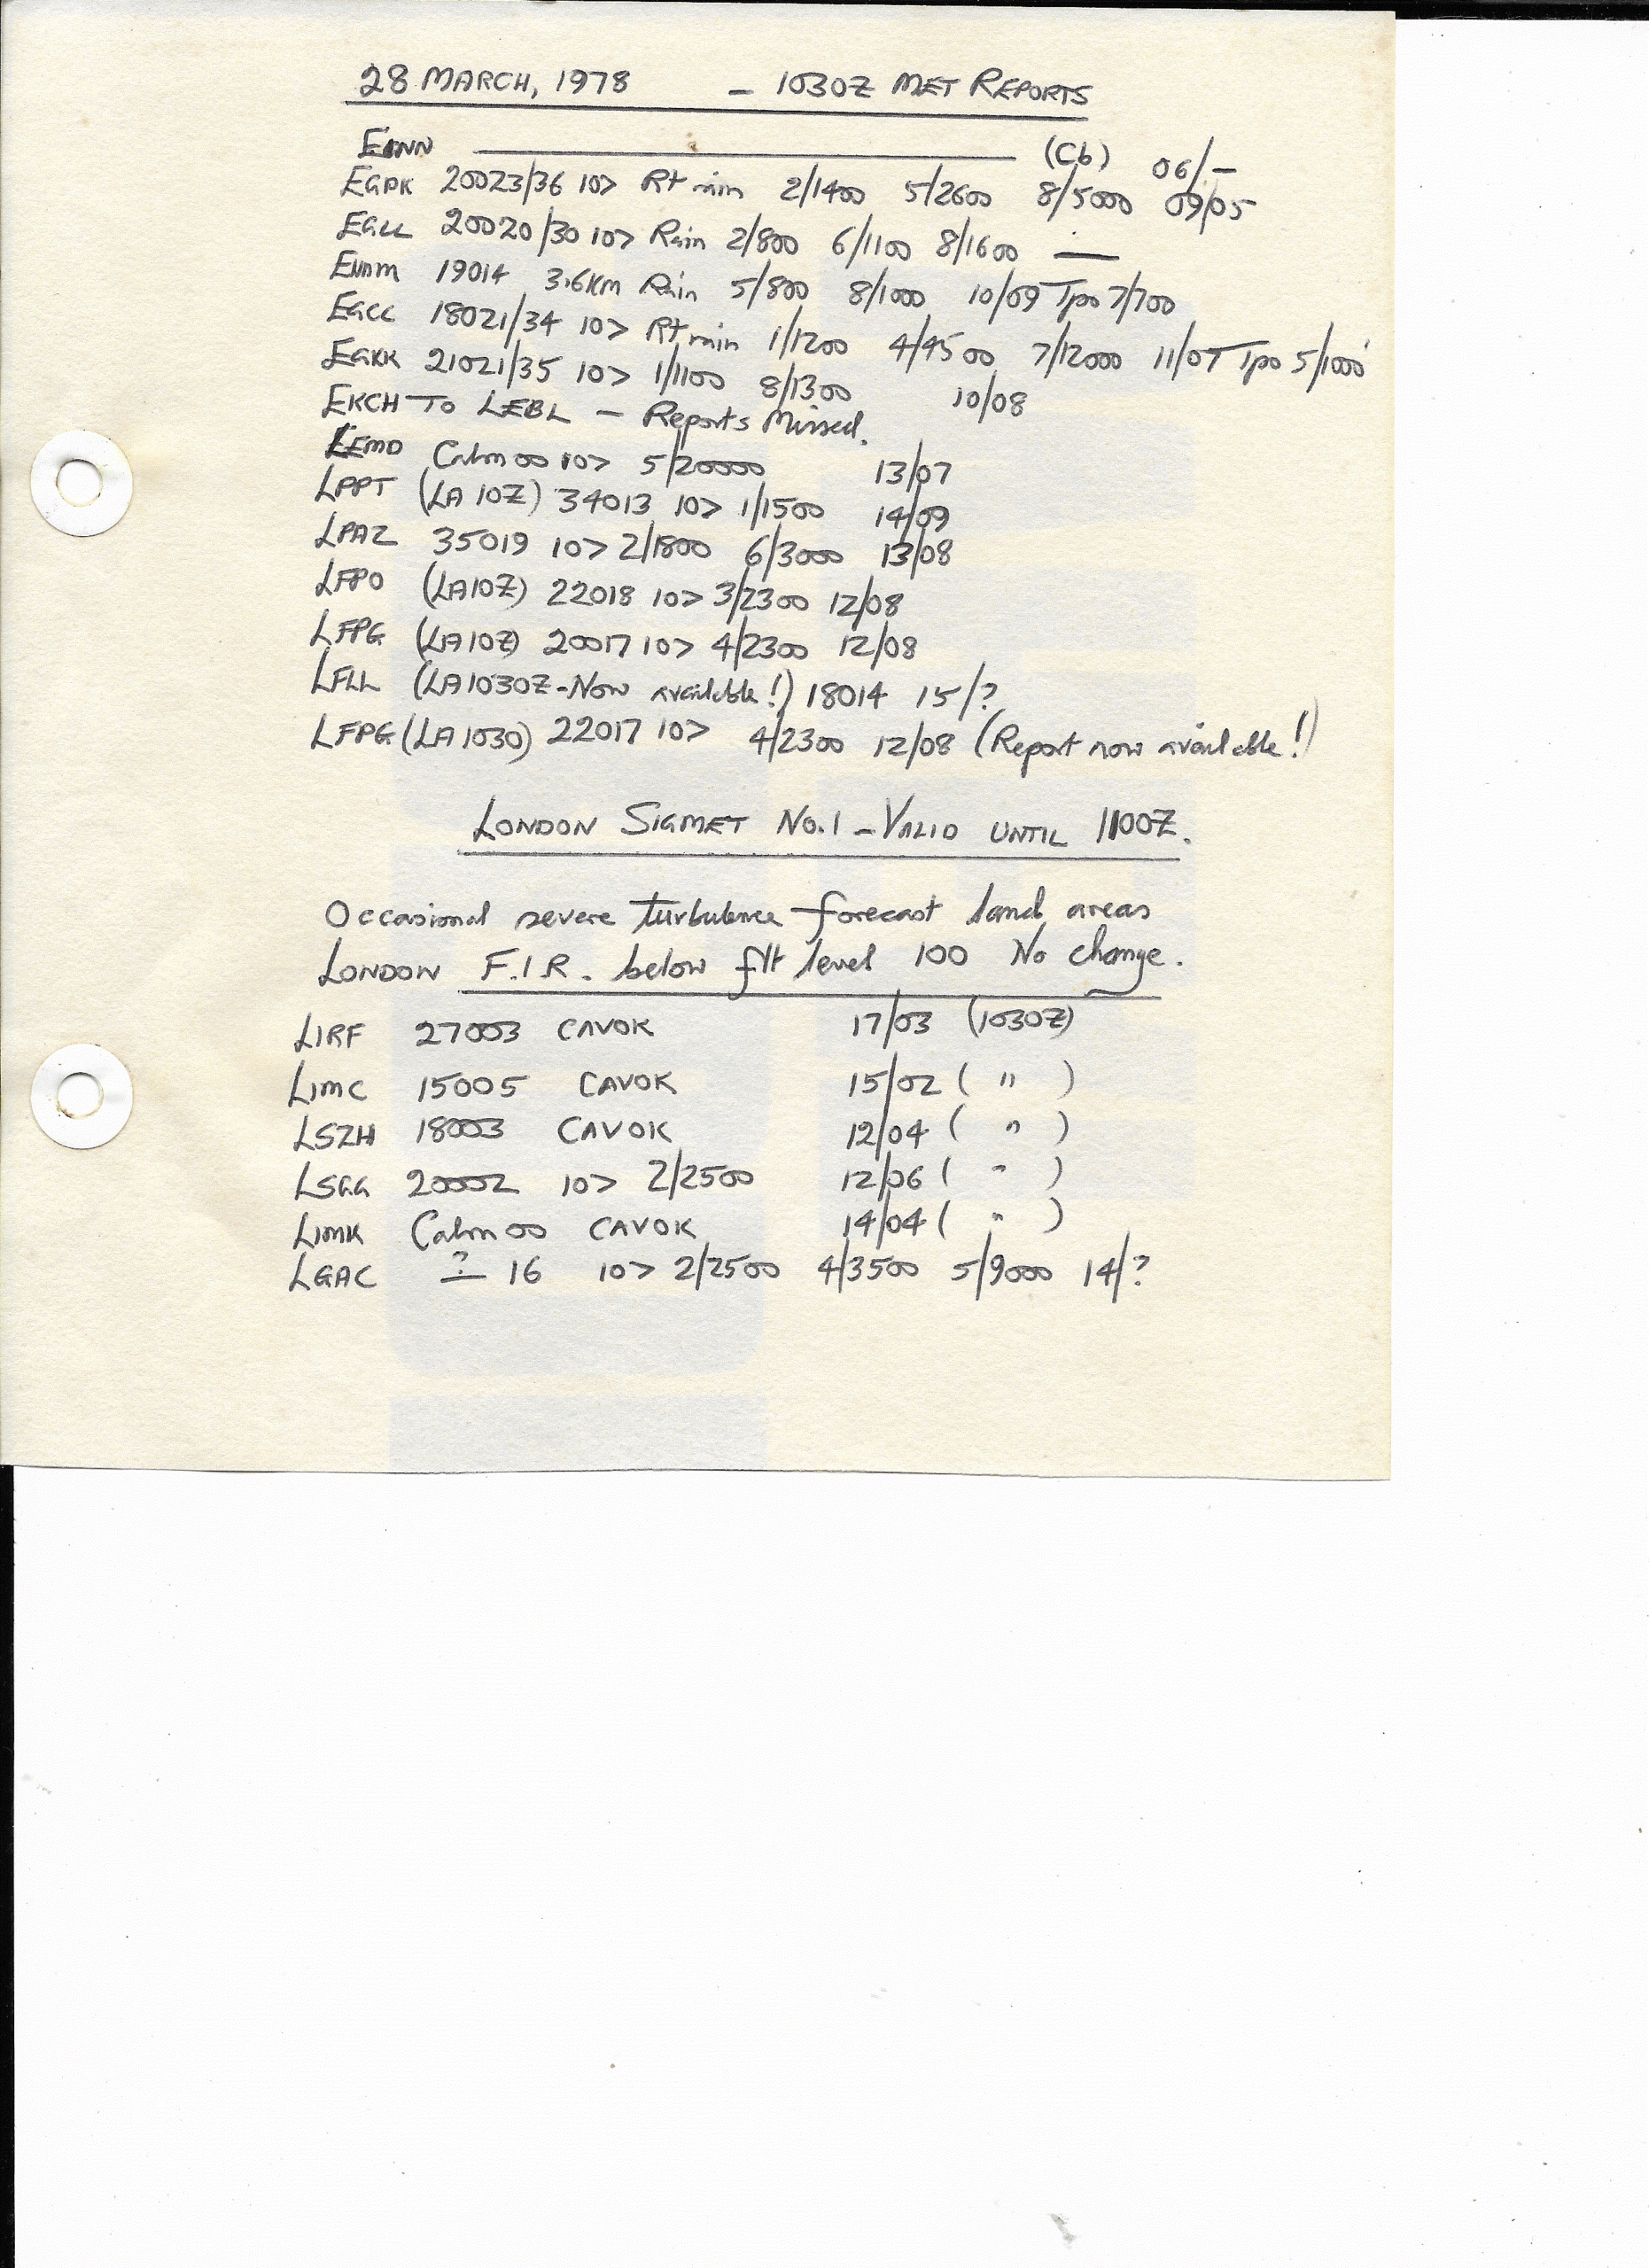 28 MARCH, 1978 — 1030Z MET REPORTS
EINN ———— (Cb) 06/-
EGPK 20023/36 10> Rt rain 2/1400 5/2600 8/5000 09/05
EGLL 20020/30 10> Rain 2/800 6/1100 8/1600 —
19014 3.6Km Rain 5/800 8/1000 10/09 Tpo 7/700
EGCC 18021/34 10> Rt rain 1/1200 4/4500 7/12000 11/07 Tpo 5/1000'
EGKK 21021/35 10> 1/1100 8/1300 10/08
EKCH TO LEBL — Reports Missed.
LEMD Calm 00 10> 5/20000 13/07
LPPT (LA 10Z) 34013 10> 1/1500 14/09
LPAZ 35019 10> 2/1800 6/3000 13/08
LFPO (LA10Z) 22018 10> 3/2300 12/08
LFPG (LA10Z) 20017 10> 4/2300 12/08
LFLL (LA1030Z-Now available!) 18014 15/?
LFPG (LA1030) 22017 10> 4/2300 12/08 (Report now available!)
LONDON SIGMET No.1 - VALID UNTIL 1100Z.
Occasional severe turbulence forecast land areas
LONDON F.I.R. below flt level 100 No change.
LIRF 27003 CAVOK 17/03 (1030Z)
LIMC 15005 CAVOK 15/02 ( " )
LSZH 18003 CAVOK 12/04 ( " )
LSGG 20002 10> 2/2500 12/06 ( " )
LIMK Calm 00 CAVOK 14/04 ( " )
LGAC ? — 16 10> 2/2500 4/3500 5/9000 14/?